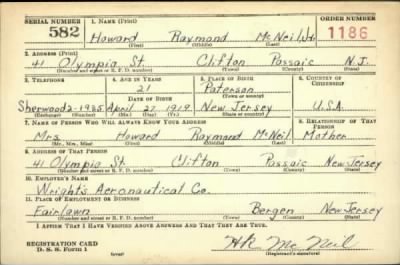 SERIAL NUMBER 1. NAME (Print) ORDER NUMBER
582 Howard Raymond McNeil, Jr. 1186
(First) (Middle) (Last)
2. ADDRESS (Print)
41 Olympia St. Clifton Passaic N.J.
(Number and street or R. F. D. number) (Town) (County) (State)
3. TELEPHONE 4. AGE IN YEARS 5. PLACE OF BIRTH 6. COUNTRY OF CITIZENSHIP
21 Paterson
DATE OF BIRTH (Town or county)
Sherwood 2-1935 April 27 1919 New Jersey U.S.A.
(Exchange) (Number) (Mo.) (Day) (Yr.) (State or country)
7. NAME OF PERSON WHO WILL ALWAYS KNOW YOUR ADDRESS 8. RELATIONSHIP OF THAT PERSON
Mrs. Howard Raymond McNeil Mother
(Mr., Mrs., Miss) (First) (Middle) (Last)
9. ADDRESS OF THAT PERSON
41 Olympia St. Clifton Passaic New Jersey
(Number and street or R. F. D. number) (Town) (County) (State)
10. EMPLOYER'S NAME
Wright's Aeronautical Co.
11. PLACE OF EMPLOYMENT OR BUSINESS
Fairlawn Bergen New Jersey
(Number and street or R. F. D. number) (Town) (County) (State)
I AFFIRM THAT I HAVE VERIFIED ABOVE ANSWERS AND THAT THEY ARE TRUE.
REGISTRATION CARD
D. S. S. Form 1 (over) HR McNeil
(Registrant's signature)